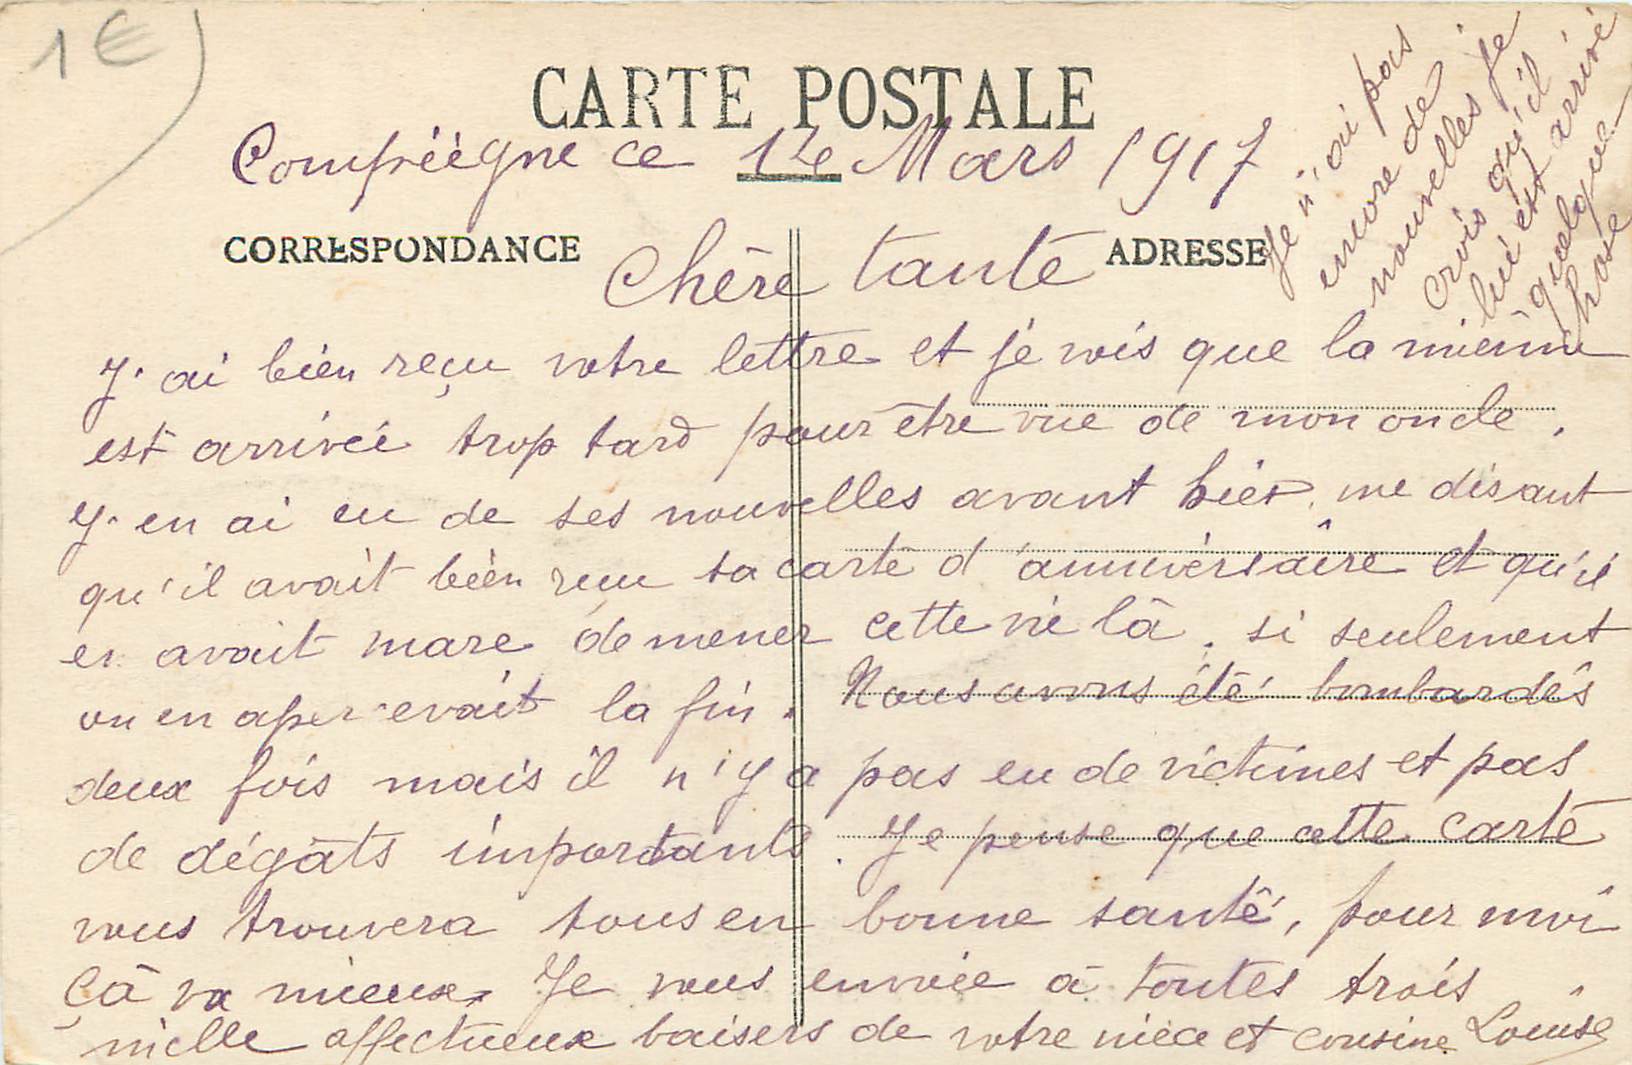 1 €
CARTE POSTALE
Compiègne ce 1re Mars 1917
CORRESPONDANCE
ADRESSE
Chère tante
J'ai bien reçu votre lettre et je vois que la mienne
est arrivée trop tard pour être vue de mon oncle.
J'en ai eu de ses nouvelles avant hier, me disant
qu'il avait bien reçu sa carte d'anniversaire et qu'il
en avait mare de mener cette vie là, si seulement
on en apercevait la fin. Nous avons été bombardés
deux fois mais il n'y a pas eu de victimes et pas
de dégâts importants. Je pense que cette carte
vous trouvera tous en bonne santé, pour moi
çà va mieux. Je vous envoie à toutes trois
mille affectueux baisers de votre nièce et cousine Louise
Je n'ai pas
encore de
nouvelles je
crois qu'il
lui est arrivé
quelque
chose